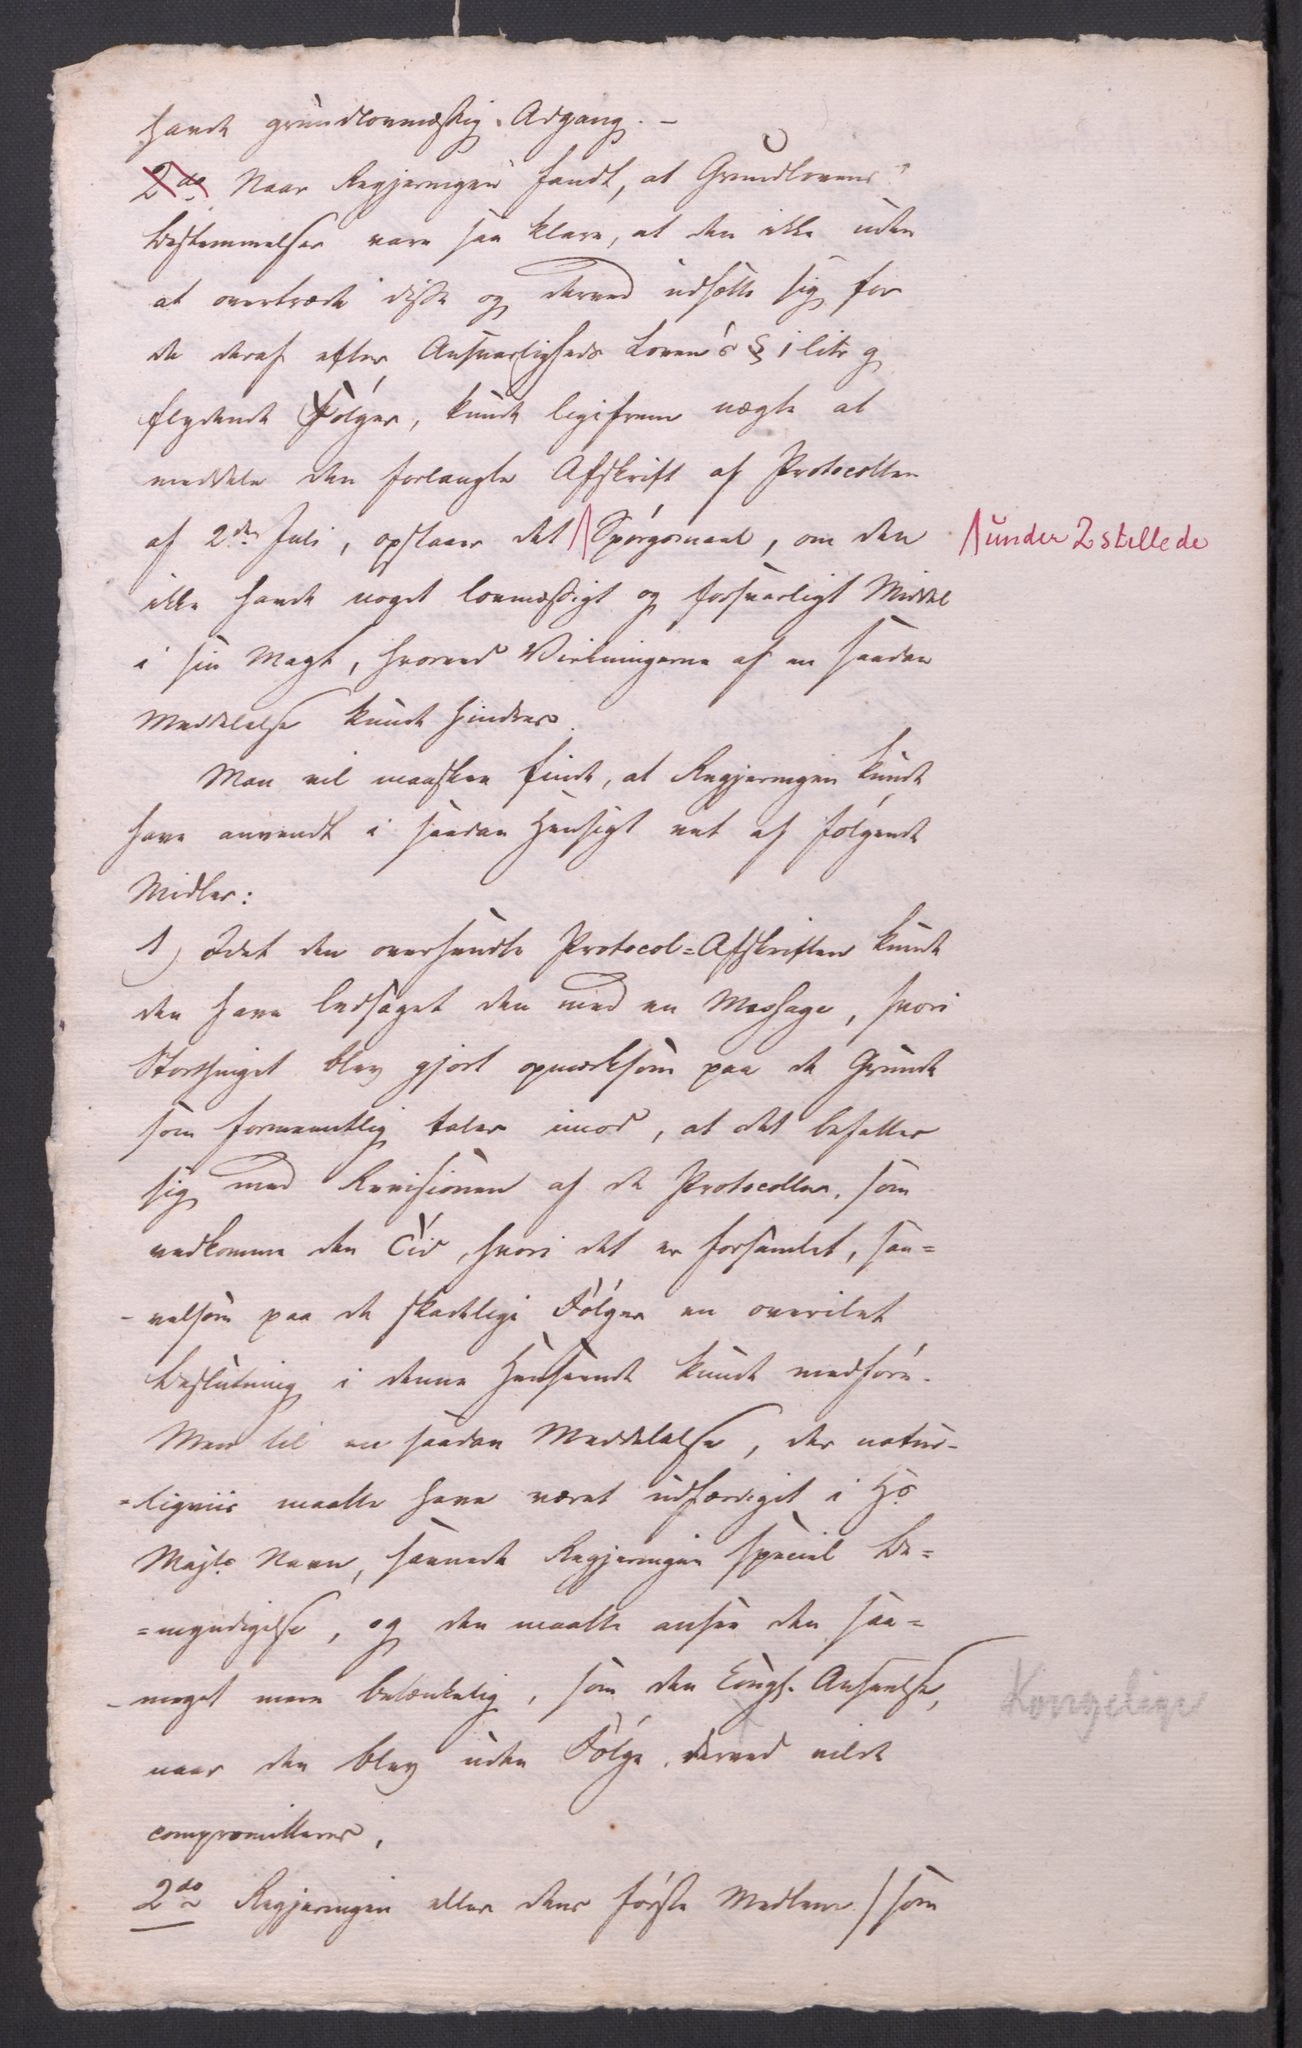 havde grundlovmæssig Adgang. –
2do Naar Regjeringen fandt, at Grundlovens
Bestemmelser vare saa klare, at den ikke uden
at overtræde disse og derved udsætte sig for
de deraf efter Ansvarligheds Loven's § 1 litr g
flydende Følger, kunde ligefrem negte at
meddele den forlangte Afskrift af Protocollen
af 2den Juli, opstaaer det Spørgsmaal, om den
under 2 stillede
ikke havde noget lovmæssigt og forsvarligt Middel
i sin Magt, hvorved Virkningerne af en saadan
Meddelelse kunde hindres.
Man vil maaskee finde, at Regjeringen kunde
have anvendt i saadan Hensigt eet af følgende
Midler:
1) Idet den oversendte Protocol=Afskriften kunde
den have ledsaget den med en Message, hvori
Storthinget blev gjort opmærksom paa de Grunde
som formeentlig taler imod, at det befatter
sig med Revisionen af de Protocoller, som
vedkomme den Tid, hvori det er forsamlet, saa=
-velsom paa de skadelige Følger en overilet
Beslutning i denne Henseende kunde medføre.
Men til en saadan Meddelelse, der natur-
=ligviis maatte have været udfærdiget i Hs
Majts Navn, savnede Regjeringen special Be=
=myndigelse, og den maatte ansee den saa=
-meget mere betænkelig, som den Kongl. Anseelse,
Kongelige
naar den blev uden Følge, derved vilde
compromitteres.
2do Regjeringen eller dens første Medlem / som